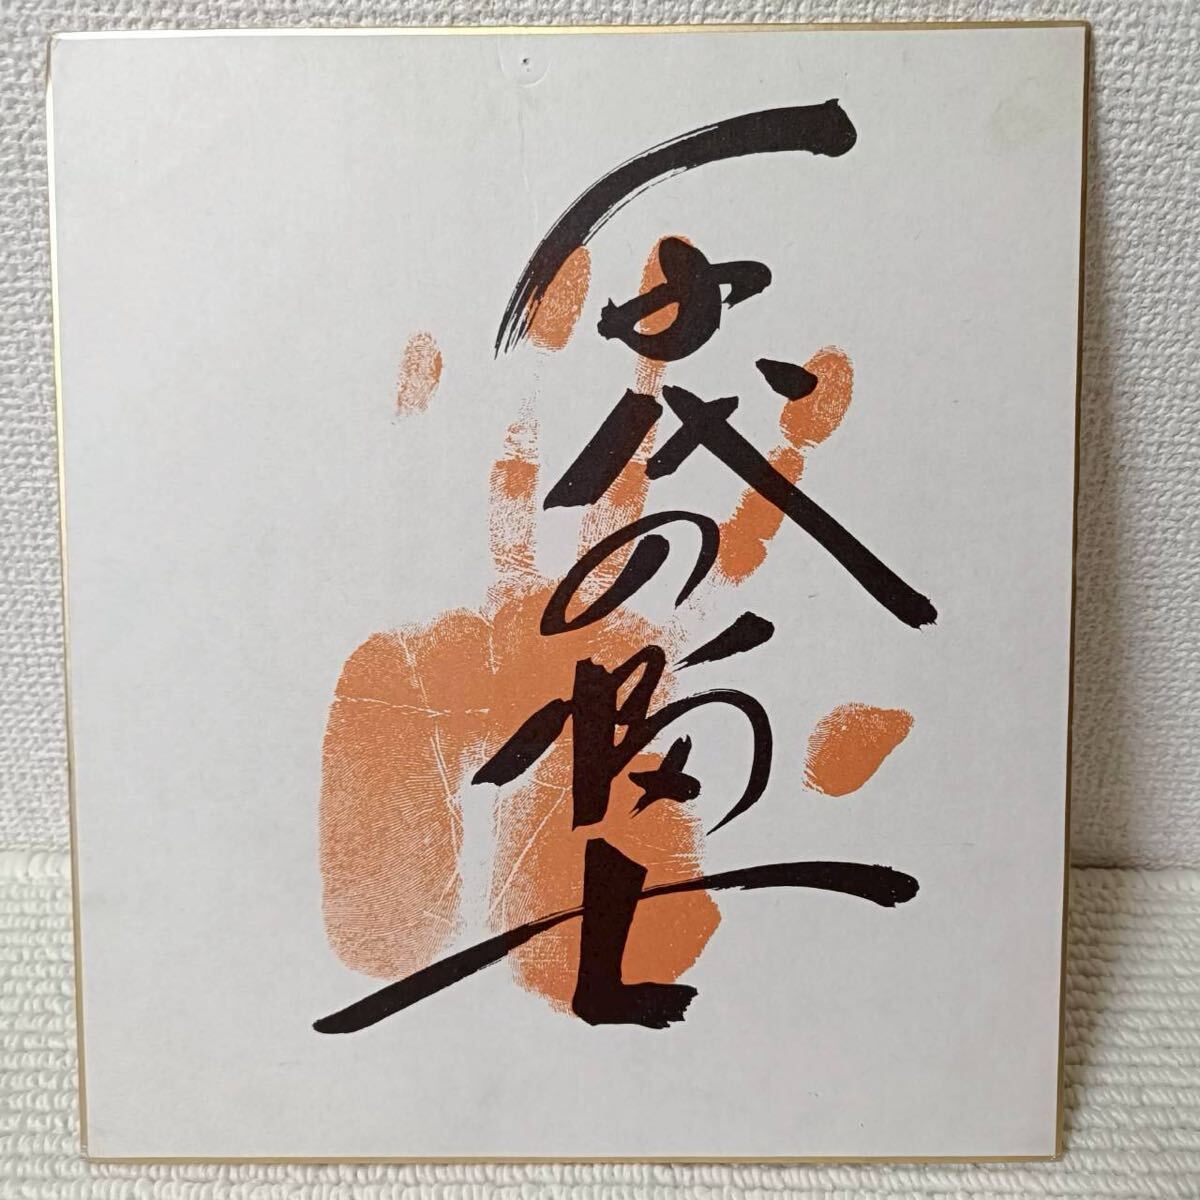 千代の富士